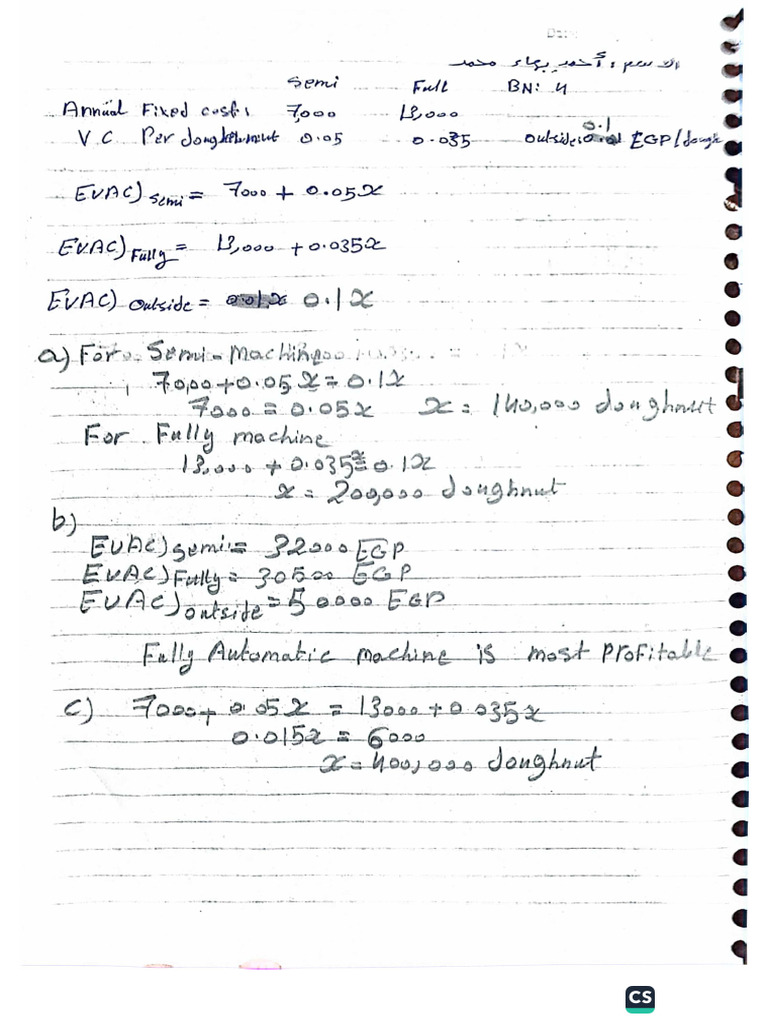 الاسم: أحمد بهاء محمد
Semi Full BN: 4
Annual Fixed costs 7,000 13,000
V.C Per doughnut 0.05 0.035 outside: 0.1 EGP/dough
EUAC) Semi = 7000 + 0.05x
EUAC) Fully = 13,000 + 0.035x
EUAC) outside = 0.1x
a) For Semi-Machine
7000+0.05x = 0.1x
7000 = 0.05x x = 140,000 doughnut
For Fully machine
13,000 + 0.035x = 0.1x
x = 200,000 doughnut
b)
EUAC) Semi = 32000 EGP
EUAC) Fully = 30500 EGP
EUAC) outside = 50000 EGP
Fully Automatic machine is most Profitable
c) 7000+ 0.05x = 13000+0.035x
0.015x = 6000
x = 400,000 doughnut
CS